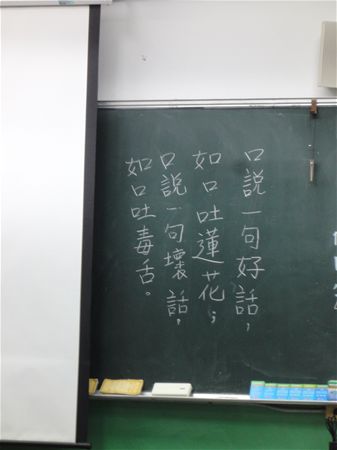 口說一句好話，
如口吐蓮花；
口說一句壞話，
如口吐毒舌。